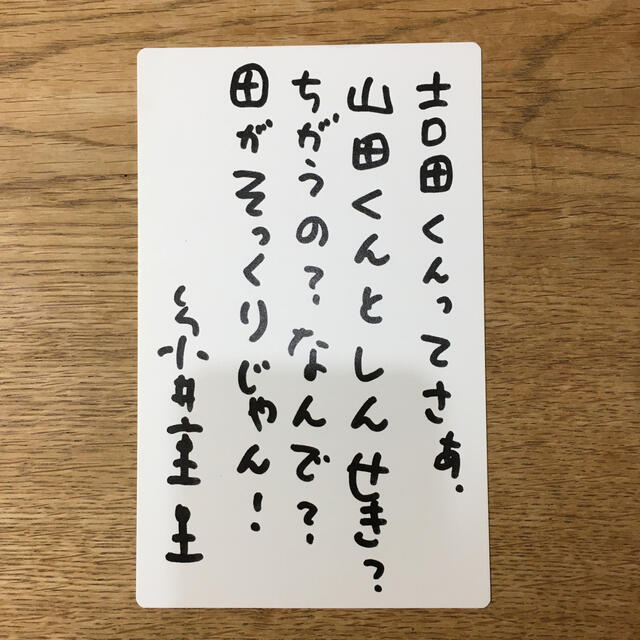 吉田くんってさぁ.
山田くんとしんせき?
ちがうの?なんで?
田がそっくりじゃん!
糸井重里